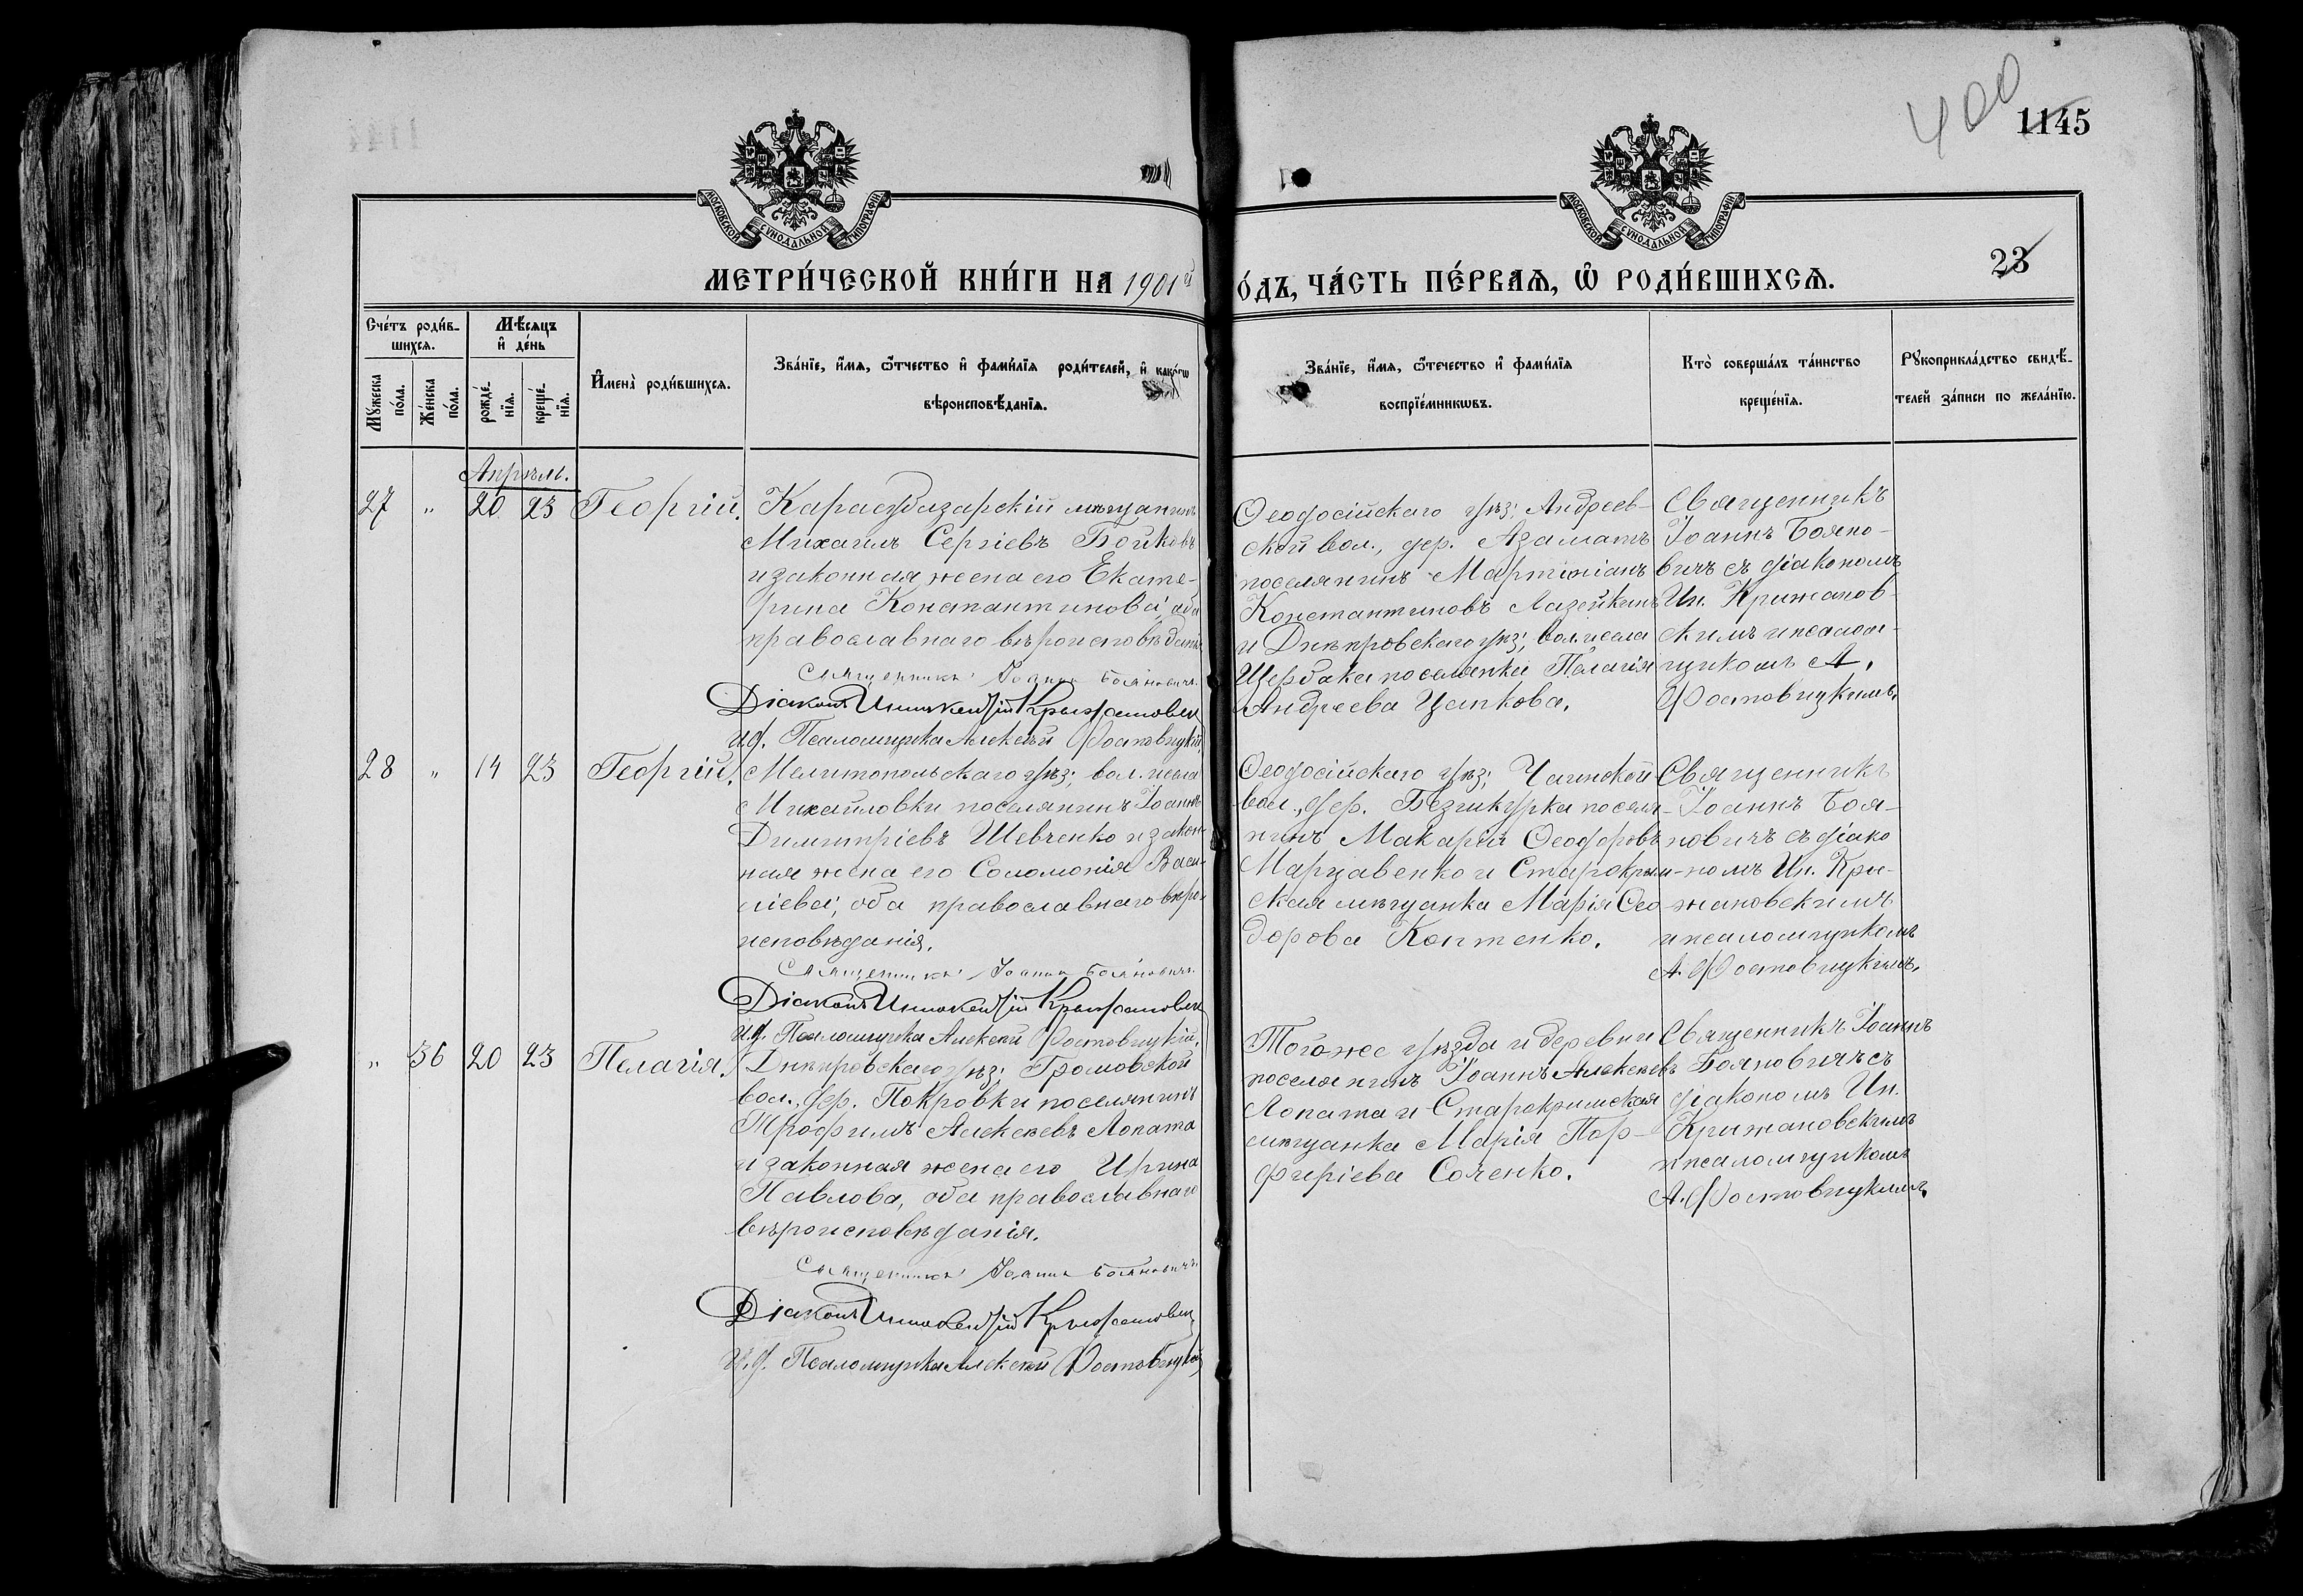 400
1145
МОСКОВСКОЙ СѴНОДАЛЬНОЙ ТИПОГРАФІИ
МОСКОВСКОЙ СѴНОДАЛЬНОЙ ТИПОГРАФІИ
23
МЕТРИ́ЧЕСКОЙ КНИ́ГИ НА 1901й
О́ДЪ, ЧА́СТЬ ПЕ́РВАѦ, Ѡ҆ РОДИ́ВШИХСѦ.
Сче́тъ роди́в-
шихсѧ.
Мꙋ́жеска по́ла.
Же́нска по́ла.
Мѣ́сѧцъ
и҆ де́нь
рожде́-
нїѧ.
креще́-
нїѧ.
И҆мена̀ роди́вшихсѧ.
Зва́нїе, и҆́мѧ, ѻ҆́тчество и҆ фами́лїѧ роди́телей, и҆ како́гѡ
вѣроисповѣ́данїѧ.
Зва́нїе, и҆́мѧ, ѻ҆те́чество и҆ фами́лїѧ
воспрїе́мникѡвъ.
Кто̀ соверша́лъ та́инство
креще́нїѧ.
Рꙋкоприкла́дство свидѣ́-
телей за́писи по жела́нїю.
Апрѣль.
27 " 20 23 Георгій.
Карасубазарскій мѣщанинъ
Михаилъ Сергіевъ Бойковъ
и законная жена его Екате-
рина Константинова, оба
православнаго вѣроисповѣданія
Священникъ Іоаннъ Бояновичъ.
Діаконъ Иннокентій Крыжановск
И.д. Псаломщика Алексѣй Ростовцкій
Ѳеодосійскаго уѣз: Андреев-
ской вол., дер. Азаматъ
поселянинъ Мартиніанъ
Константиновъ Лазейкинъ
и Днѣпровскаго уѣз; вол. и села
Щербаки поселянка Пелагія
Андреева Цапкова.
Священникъ
Іоаннъ Бояно-
вичъ съ діакономъ
Ин. Крижанов-
скимъ и псалом-
щикомъ А.
Ростовцкимъ.
28 " 14 23 Георгій.
Мелитопольскаго уѣз; вол. и села
Михайловки поселянинъ Іоаннъ
Димитріевъ Шевченко и закон-
ная жена его Соломонія Васи-
ліева; оба православнаго вѣро-
исповѣданія.
Священникъ Іоаннъ Бояновичъ.
Діаконъ Иннокентій Крыжановск
И.д. Псаломщика Алексѣй Ростовцкій.
Ѳеодосійскаго уѣз; Чалнской
вол., дер. поселя-
нинъ Макарій Ѳеодоровъ
Марцавенко и Старокрым-
ская мѣщанка Марія Ѳео-
дорова Коптенко.
Священникъ
Іоаннъ Боя-
новичъ съ діако
номъ Ин. Кри-
жановскимъ
и псаломщикомъ
А. Ростовцкимъ.
" 36 20 23 Пелагія.
Днѣпровскаго уѣз; Громовской
вол., дер. Покровки поселянинъ
Трофимъ Алексѣевъ Лопата
и законная жена его Ирина
Павлова, оба православнаго
вѣроисповѣданія.
Священникъ Іоаннъ Бояновичъ.
Діаконъ Иннокентій Крыжановск
И.д. Псаломщика Алексѣй Ростовцкій
Того же уѣзда и деревни
поселянинъ Іоаннъ Алексѣевъ
Лопата и Старокримская
мѣщанка Марія Пор-
фиріева Соленко.
Священникъ Іоаннъ
Бояновичъ съ
діакономъ Ин.
Крижановскимъ
и псаломщикомъ
А. Ростовцкимъ.